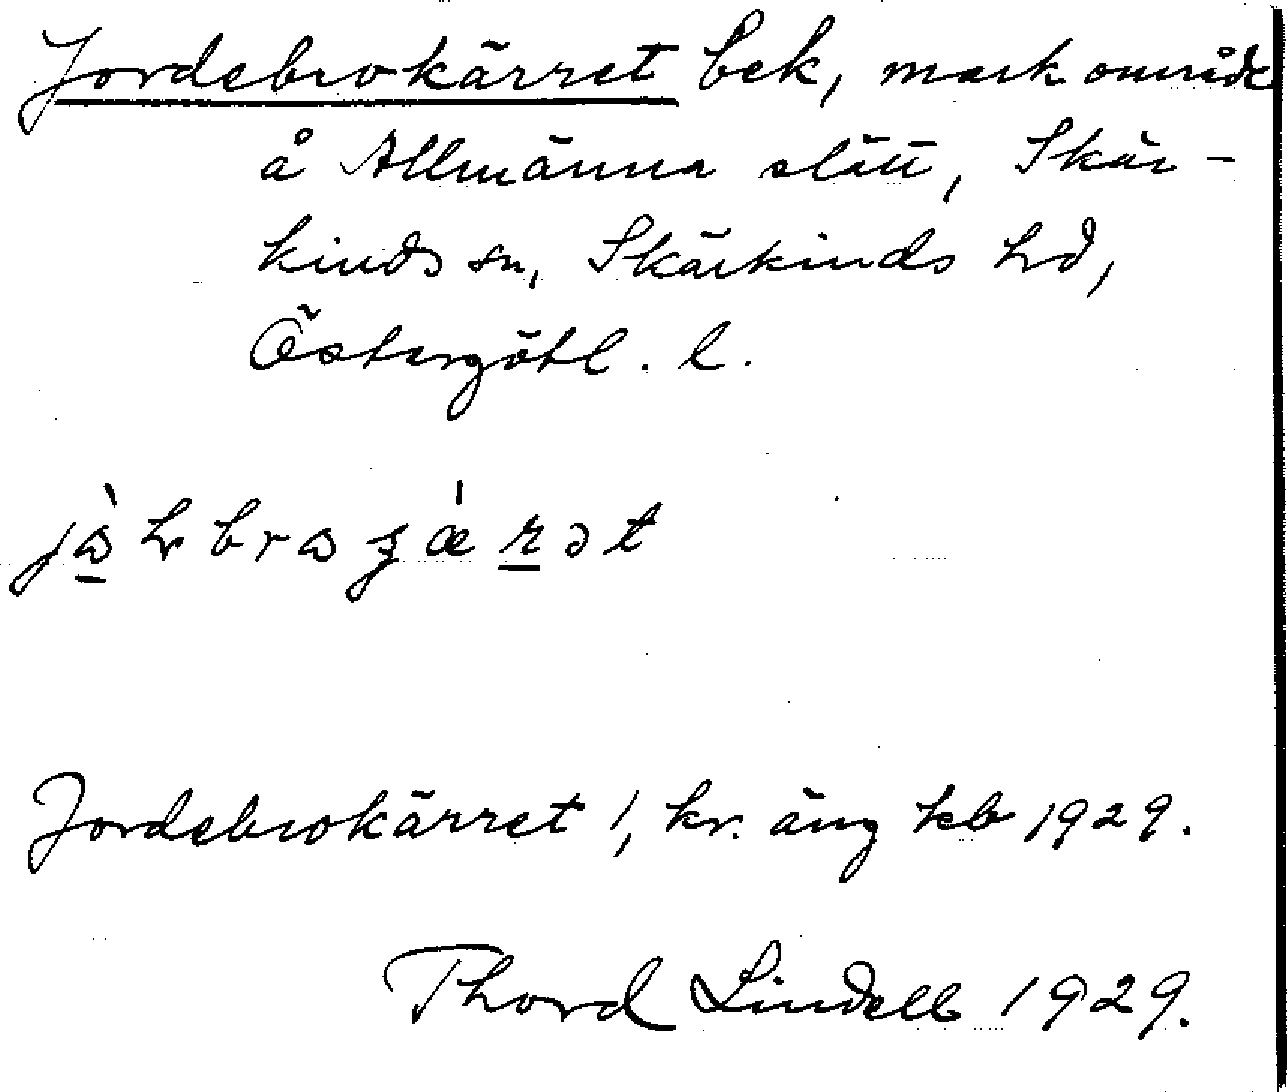 Jordebrokärret bek, markområde
å Allmänna slätt, Skär-
kinds sn, Skärkinds hd,
Östergötl. l.
Jordebrokärret 1, kr. äng kb 1929.
Thord Lindell 1929.